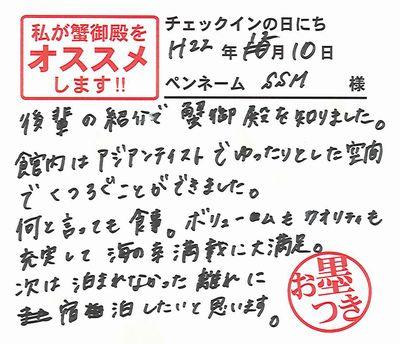 私が蟹御殿を
オススメ
します!!
チェックインの日にち
H22年 月10日
ペンネーム SSM 様
後輩の紹介で蟹御殿を知りました。
館内はアジアンテイストでゆったりとした空間
でくつろぐことができました。
何と言っても食事。ボリュームもクオリティも
充実して海の幸満載に大満足。
次は泊まれなかった離れに
宿泊したいと思います。
お墨つき